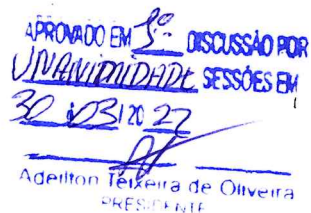 APROVADO EM 1º DISCUSSÃO POR
UNANIMIDADE SESSÕES EM
30 / 03 / 20 22
Adeilton Teixeira de Oliveira
PRESIDENTE